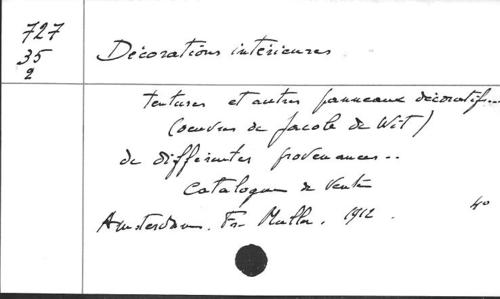 727
35
2
Décorations intérieures
tentures et autres panneaux décoratifs...
(oeuvres de Jacob de Wit)
de différentes provenances..
Catalogue de vente
Amsterdam. Fr. Muller. 1912. 4o